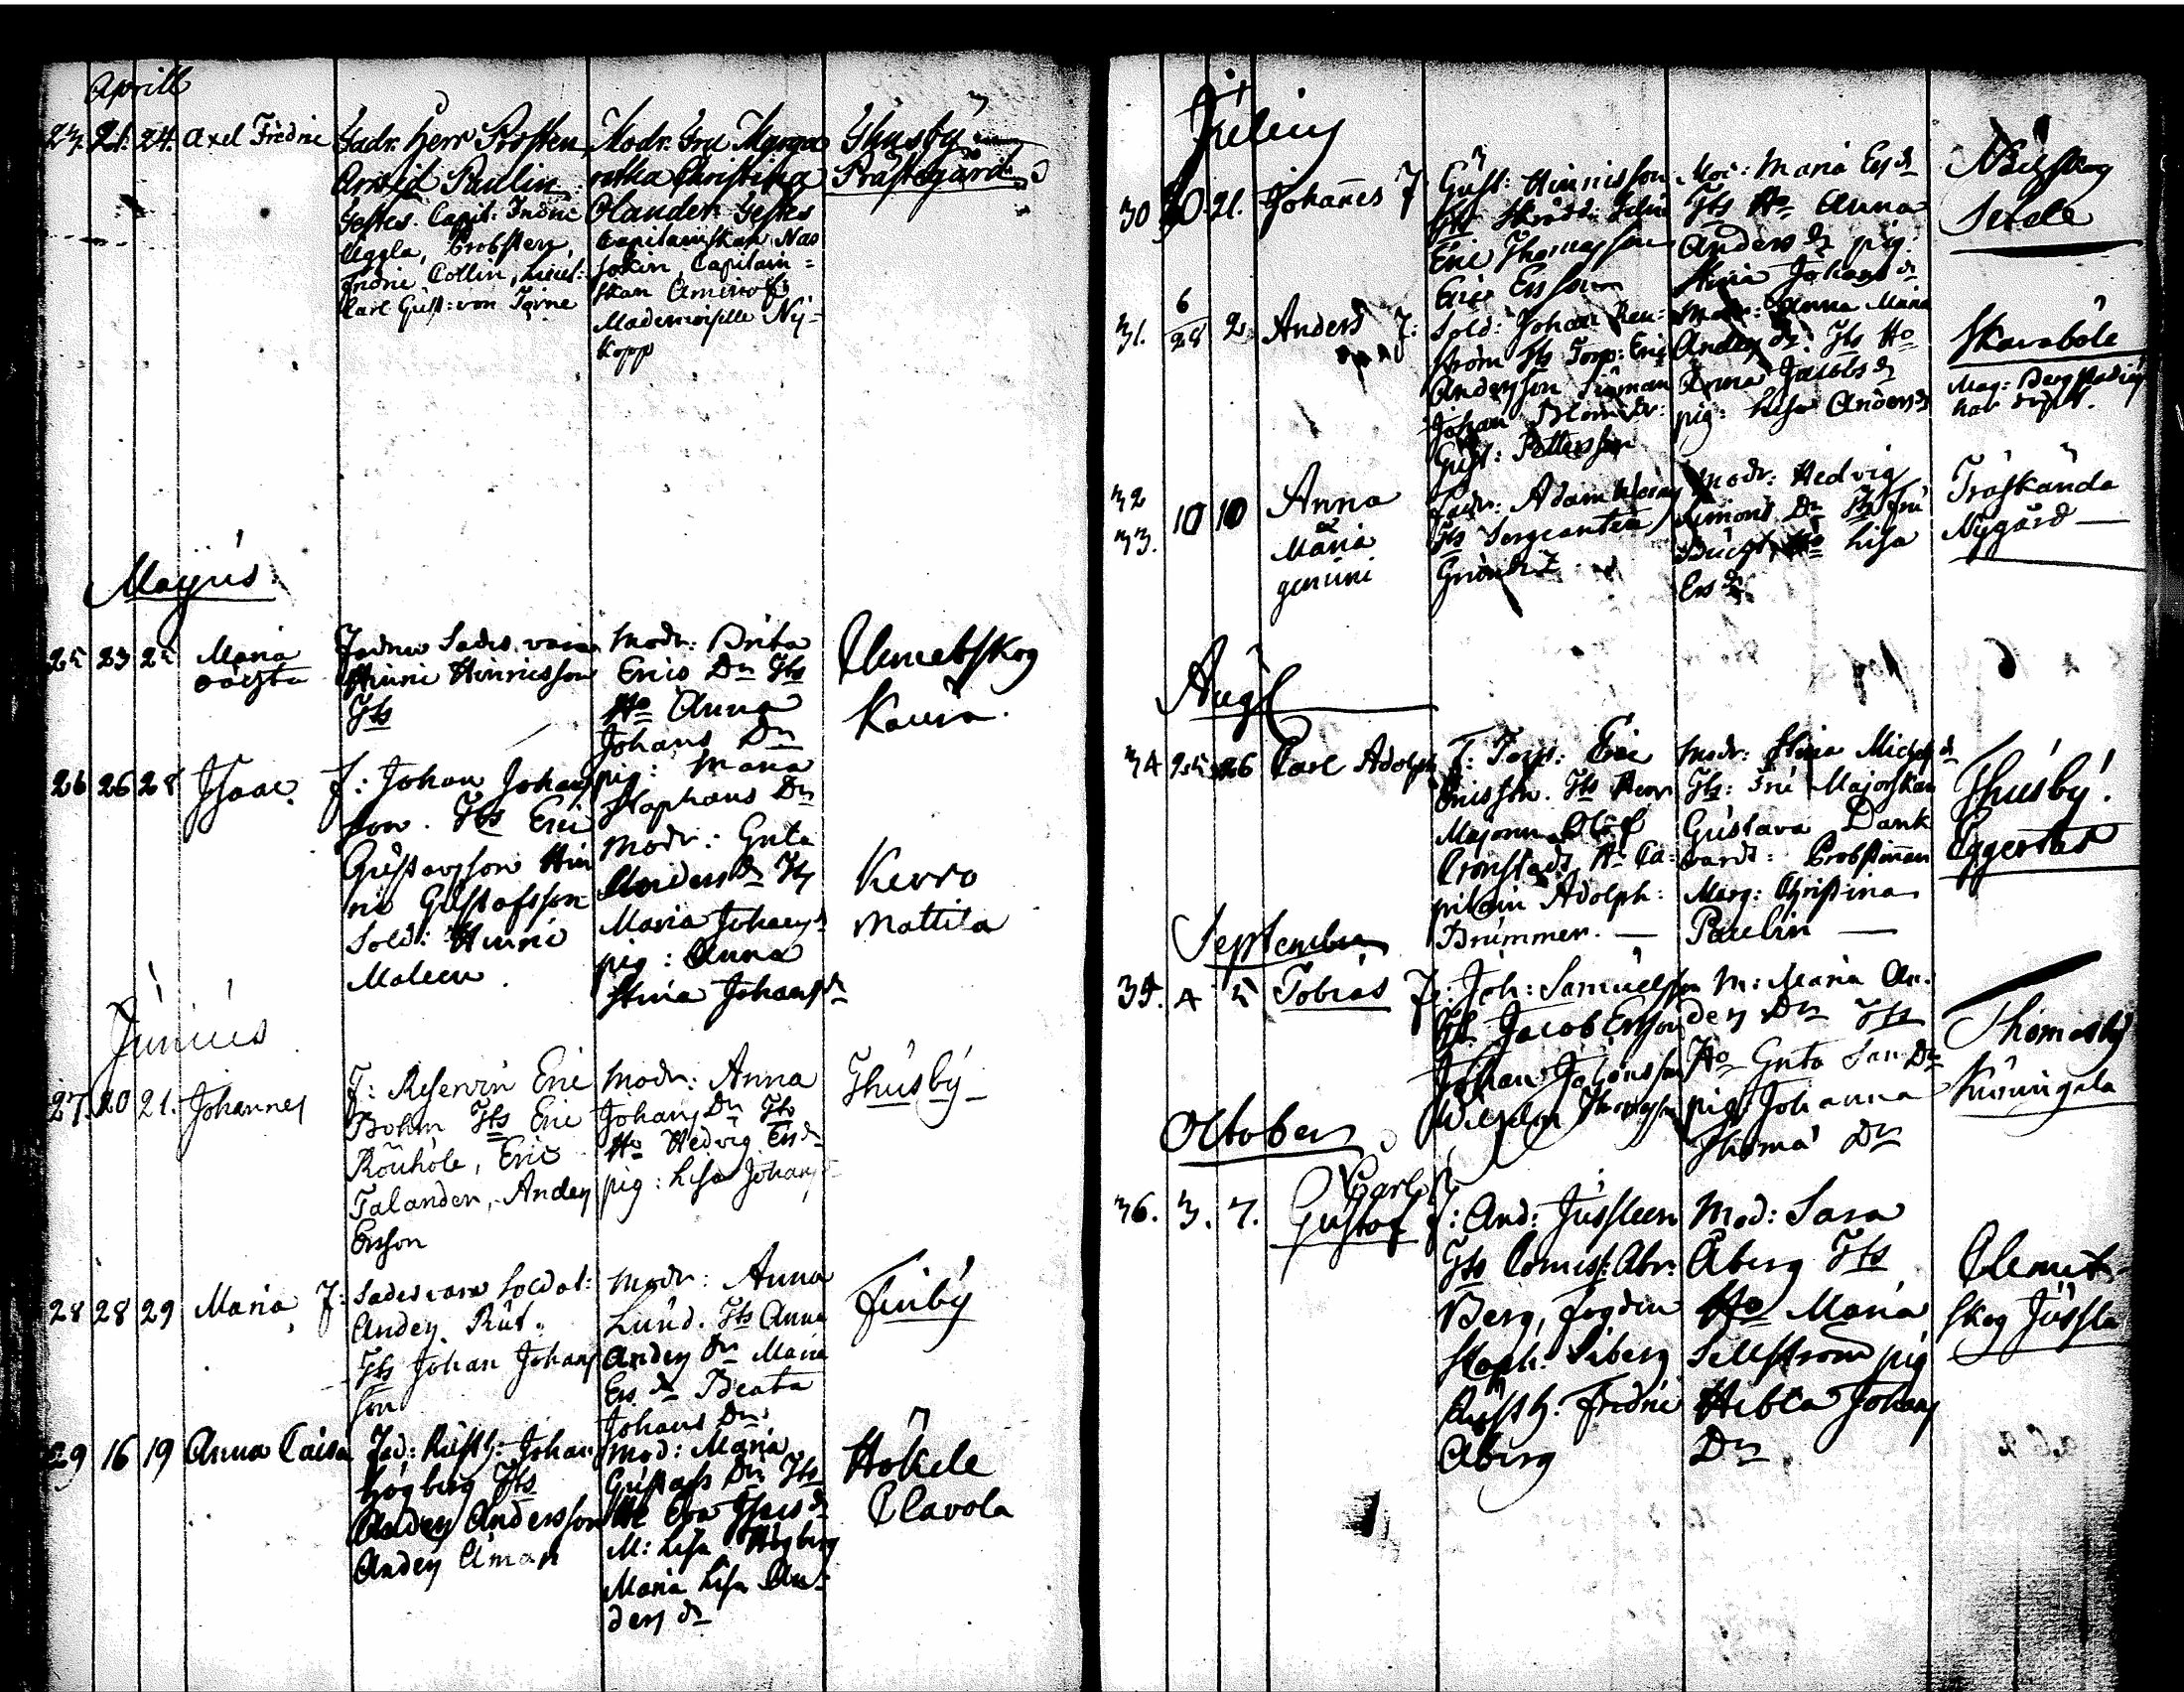 Aprill
23. 21. 24. Axel Fredric
Fadr. Herr Prosten
Arvid Paulin
Testes. Capit: Fredric
Uggla, Probsten,
Fredric Collin, Lieut:
Carl Gust: von Törne
Modr. Fru Marga
retha Christina
Olander. Testes
Capitainskan Nas
sokin, Capitain=
skan Aminoff
Mademoiselle Ny=
kopp
Thusby
Prästegård
Majus
25 23 25 Maria
oächta
Hinric Hinricsson
Tts
Modr: Brita
Erics Dr Tts
Ho Anna
Johans Dr
pig: Maria
Staphans Dr
Clemetskog
Kaura.
26 26 28 Isaac
f: Johan Johans
son. Tts Eric
Gustavsson Hin
ric Gustafsson
Sold: Hinric
Maleen
Modr: Greta
Anders Dr Tts
Maria Johans dr
pig: Anna
Stina Johans dr
Kerro
Mattila
Junius
27. 20 21. Johannes
F: Reservin Eric
Bohm Tts Eric
Rouhole, Eric
Talander, Anders
Ersson
Modr: Anna
Johans Dr Tts
Ho Hedvig Ers dr
pig: Lisa Johans
Thusby
28 28 29 Maria
F: Sades vara Soldat:
Anders Rut.
Tts Johan Johans
son
Modr: Anna
Lund. Tts Anna
Anders Dr Maria
Ers dr Beata
Johans Dr
Finby
29 16 19 Anna Caisa
Fad: Rusth: Johan
Högberg Tts
Anders Andersson
Anders Åman
Mod: Maria
Gustafs Dr Tts
M: Lisa Högberg
Maria Lisa An=
ders dr
Hokele
Clavola
Julius
30 20. 21. Johannes
F Gust: Hinricsson
Eric Thomasson
Eric Ersson
Mod: Maria Ers dr
Tts Ho Anna
Anders dr pig:
Stina Johans dr
Setale
31. 6/28 2 Anders
F: Sold: Johan Ren=
ström Tts Torp: Eric
Andersson
Johan Blom dr:
Gust: Pettersson
Modr: Anna Maria
Anders dr: Tts Ho
Anna Jacobs dr
pig: Lisa Anders dr
Skavaböle
Mag: Bergstadius
har döpt.
32
33. 10 10 Anna
et
Maria
gemini
Fadr: Adam
Tts Sergeanten
Modr: Hedvig
Simons Dr Tts Fru
Ho Lisa
Ers dr
Träskända
Nygård
Aug
34 25 26 Carl Adolph
F: Torp: Eric
Ericsson. Tts Herr
Majorn Olof
Cronstedt, Hr Ca=
pitain Adolph:
Brummer.
Modr: Stina Michels dr
Tts: Fru Majorskan
Gustava Dank
vardt: Probstinnan
Marg: Christina
Paulin
Thusby.
Eggertas
September
35. 4 5 Tobias
F: Joh: Samuelsson
Tts Jacob Ersson
Johan Johansson
Wilhelm Thomasson
M: Maria An=
ders Dr Tts
Ho Greta Dr
pig: Johanna
Thoma Dr
Thomasby
October
36. 3. 7. Carl
Gustaf
f: And: Jussleen
Tts Comiss: Abr:
Berg, fogden
Staph: Siberg
Rusth. Fredric
Åberg
Mod: Sara
Åberg Tts
Ho Maria
Sellström pig
Hebla Johans
Dr
Clemet
skog Jussla